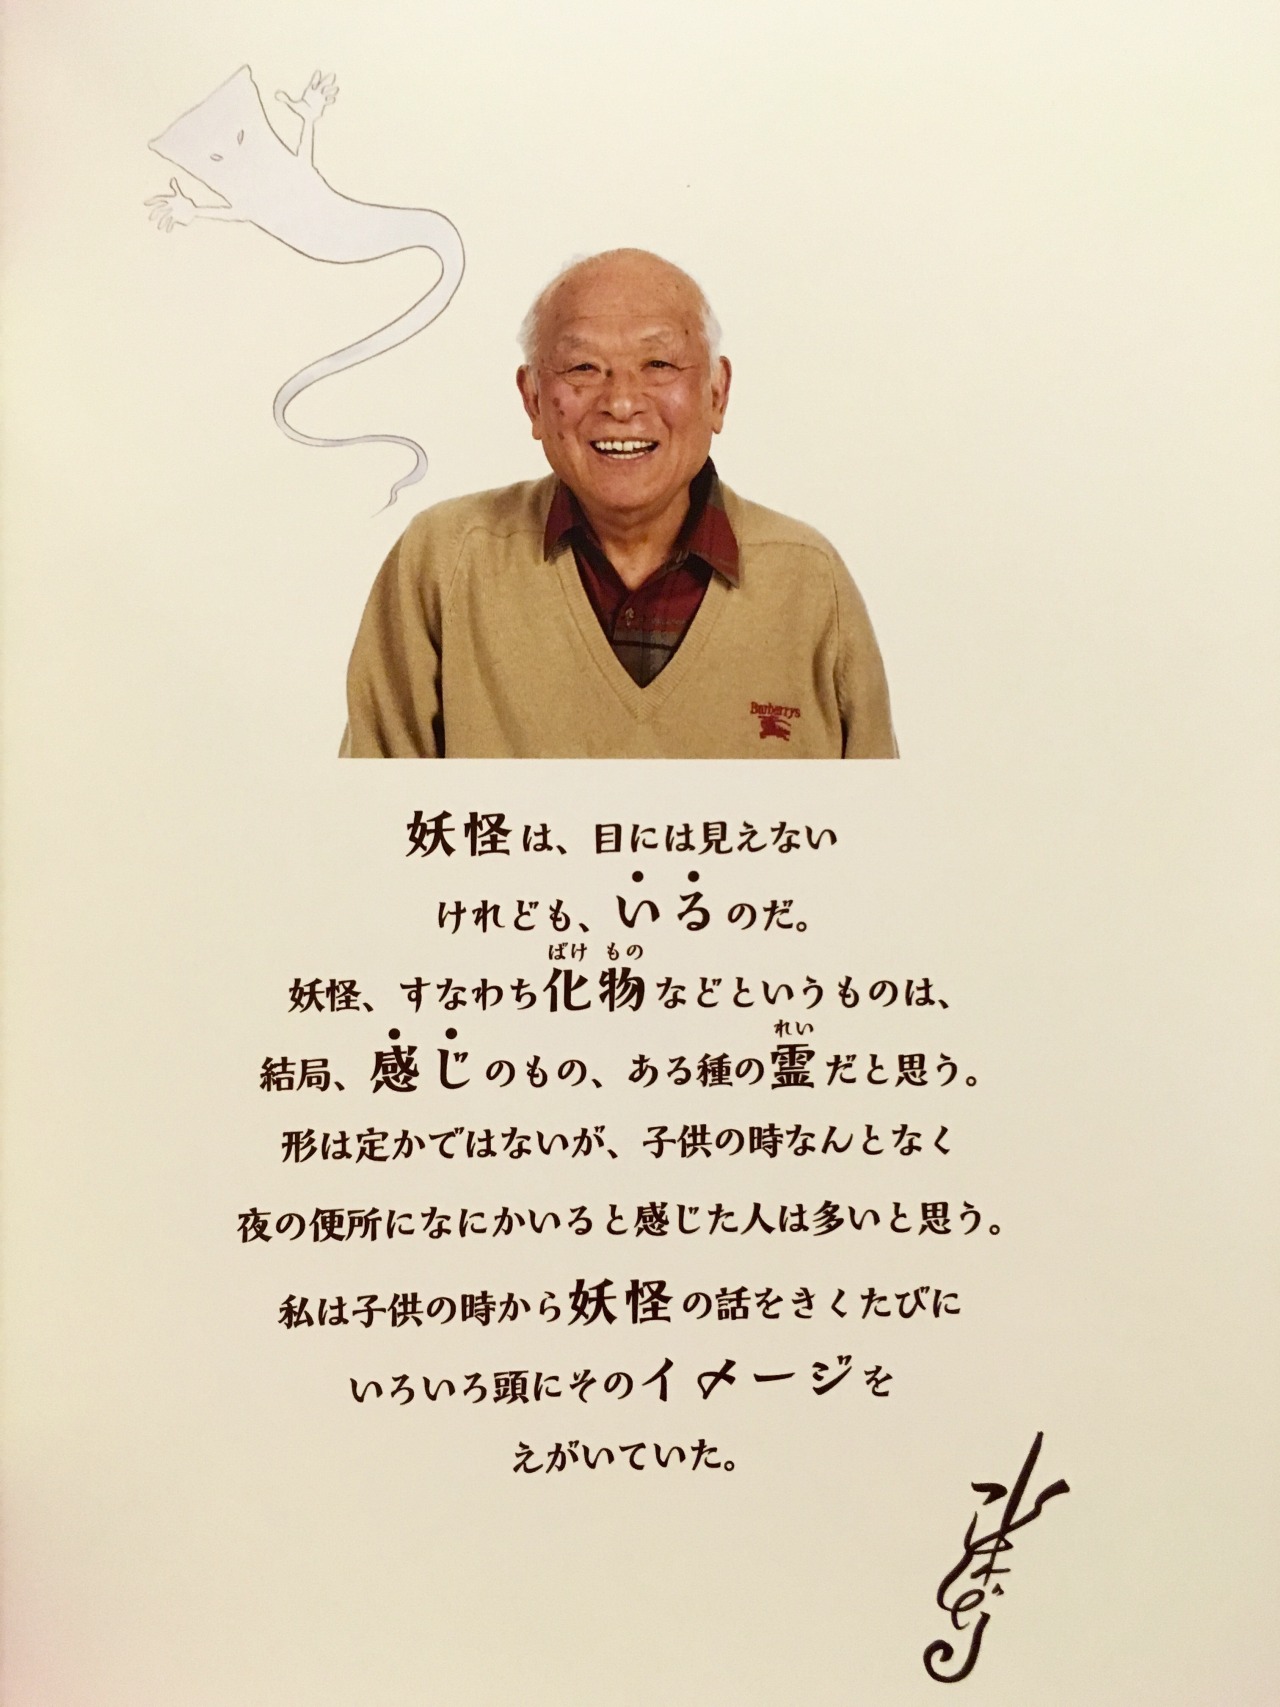 Burberrys
妖怪は、目には見えない
けれども、いるのだ。
妖怪、すなわち化物などというものは、
ばけもの
結局、感じのもの、ある種の霊だと思う。
れい
形は定かではないが、子供の時なんとなく
夜の便所になにかいると感じた人は多いと思う。
私は子供の時から妖怪の話をきくたびに
いろいろ頭にそのイメージを
えがいていた。
水木しげる